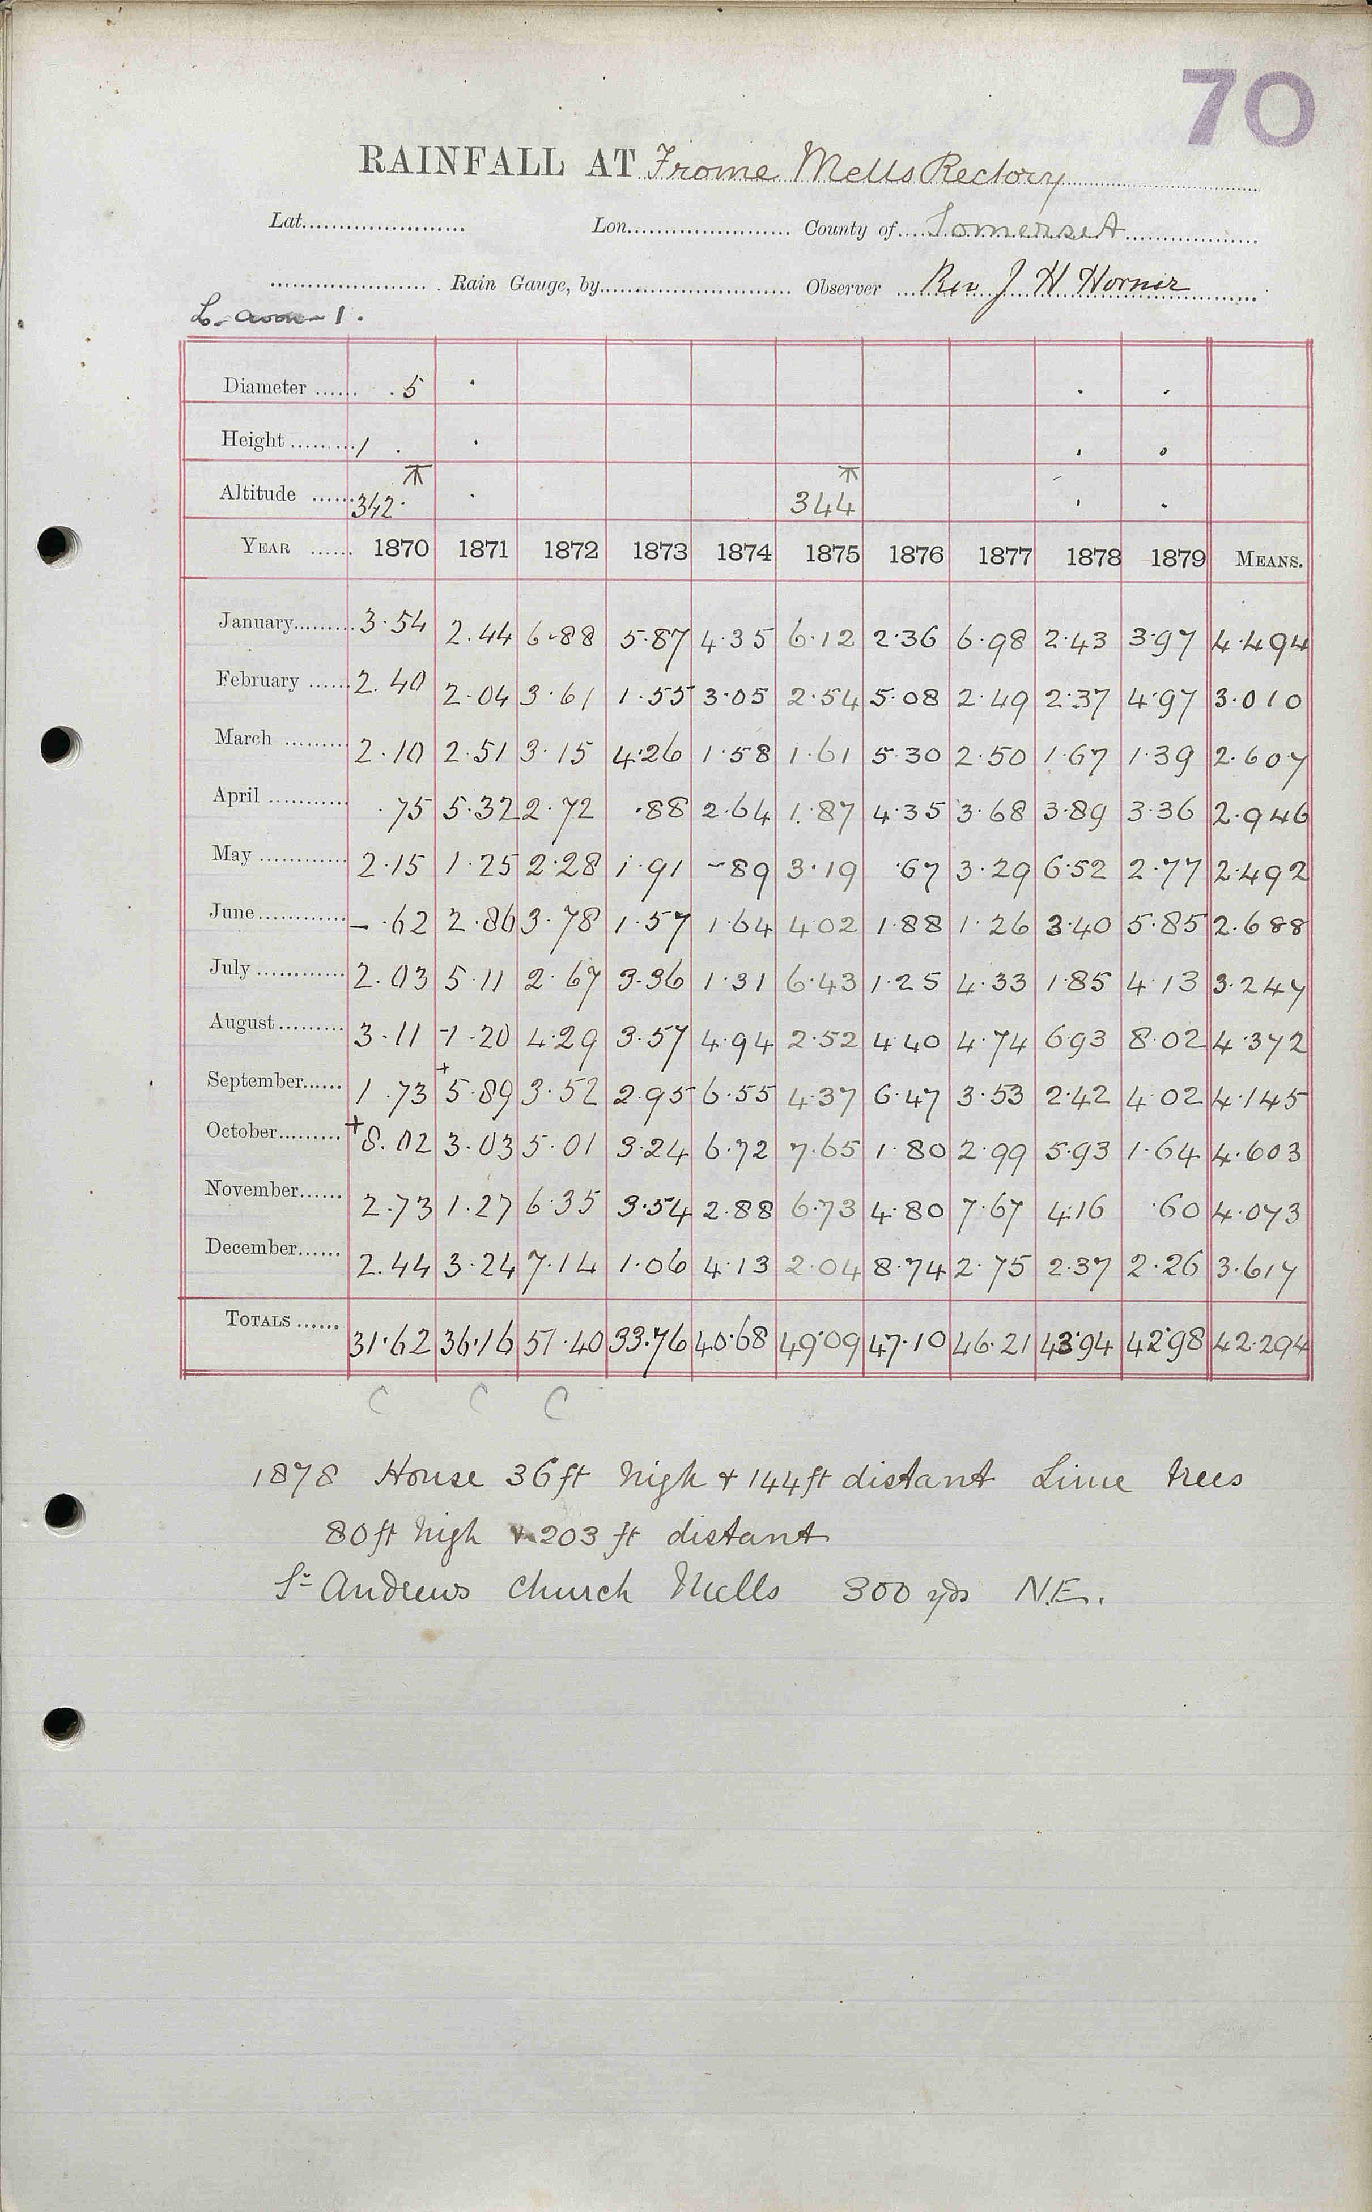 70
RAINFALL AT Frome Mells Rectory
Lat. Lon. County of Somerset
Rain Gauge, by Observer Rev J H Horner
Diameter 5
Height 1
Altitude 342 344
YEAR 1870 1871 1872 1873 1874 1875 1876 1877 1878 1879 MEANS.
January 3.54 2.44 6.88 5.87 4.35 6.12 2.36 6.98 2.43 3.97 4.494
February 2.40 2.04 3.61 1.55 3.05 2.54 5.08 2.49 2.37 4.97 3.010
March 2.10 2.51 3.15 4.26 1.58 1.61 5.30 2.50 1.67 1.39 2.607
April .75 5.32 2.72 .88 2.64 1.87 4.35 3.68 3.89 3.36 2.946
May 2.15 1.25 2.28 1.91 -89 3.19 .67 3.29 6.52 2.77 2.492
June - .62 2.86 3.78 1.57 1.64 4.02 1.88 1.26 3.40 5.85 2.688
July 2.03 5.11 2.67 3.36 1.31 6.43 1.25 4.33 1.85 4.13 3.247
August 3.11 -1.20 4.29 3.57 4.94 2.52 4.40 4.74 6.93 8.02 4.372
September 1.73 +5.89 3.52 2.95 6.55 4.37 6.47 3.53 2.42 4.02 4.145
October +8.02 3.03 5.01 3.24 6.72 7.65 1.80 2.99 5.93 1.64 4.603
November 2.73 1.27 6.35 3.54 2.88 6.73 4.80 7.67 4.16 .60 4.073
December 2.44 3.24 7.14 1.06 4.13 2.04 8.74 2.75 2.37 2.26 3.617
TOTALS 31.62 36.16 51.40 33.76 40.68 49.09 47.10 46.21 43.94 42.98 42.294
C C C
1878 House 36 ft high & 144 ft distant Lime trees
80 ft high & 203 ft distant
St Andrews Church Mells 300 yds N.E.